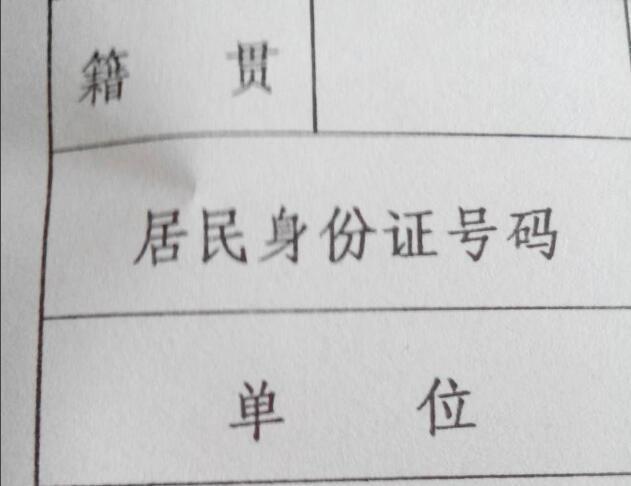 籍 贯
居民身份证号码
单 位